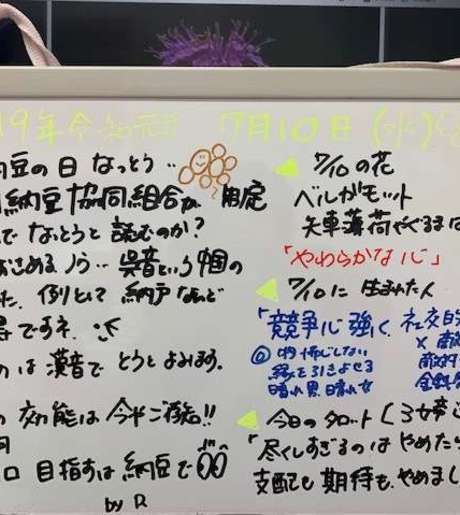 19年令和元 7月10日(水)
納豆の日 なっとう‥
納豆協同組合が 制定
で なっとうと 読むのか?
おさめる ノう‥ 呉音という 中国の
た. 例として 納戸 なんど
ですネ.
のは 漢音で とうと よみます.
の 効能は 今やご承知!!
口 目指すは 納豆で
by R
7/10の花
ベルガモット
矢車薄荷 やぐるまは
「やわらかな心」
7/10に 生まれた人
「競争心強く 社交的
◎ 物怖じしない
縁を引きよせる
晴れ男 晴れ女
×
今日のタロット (3女帝
「尽くしすぎるのは やめたら
支配も 期待も やめまし